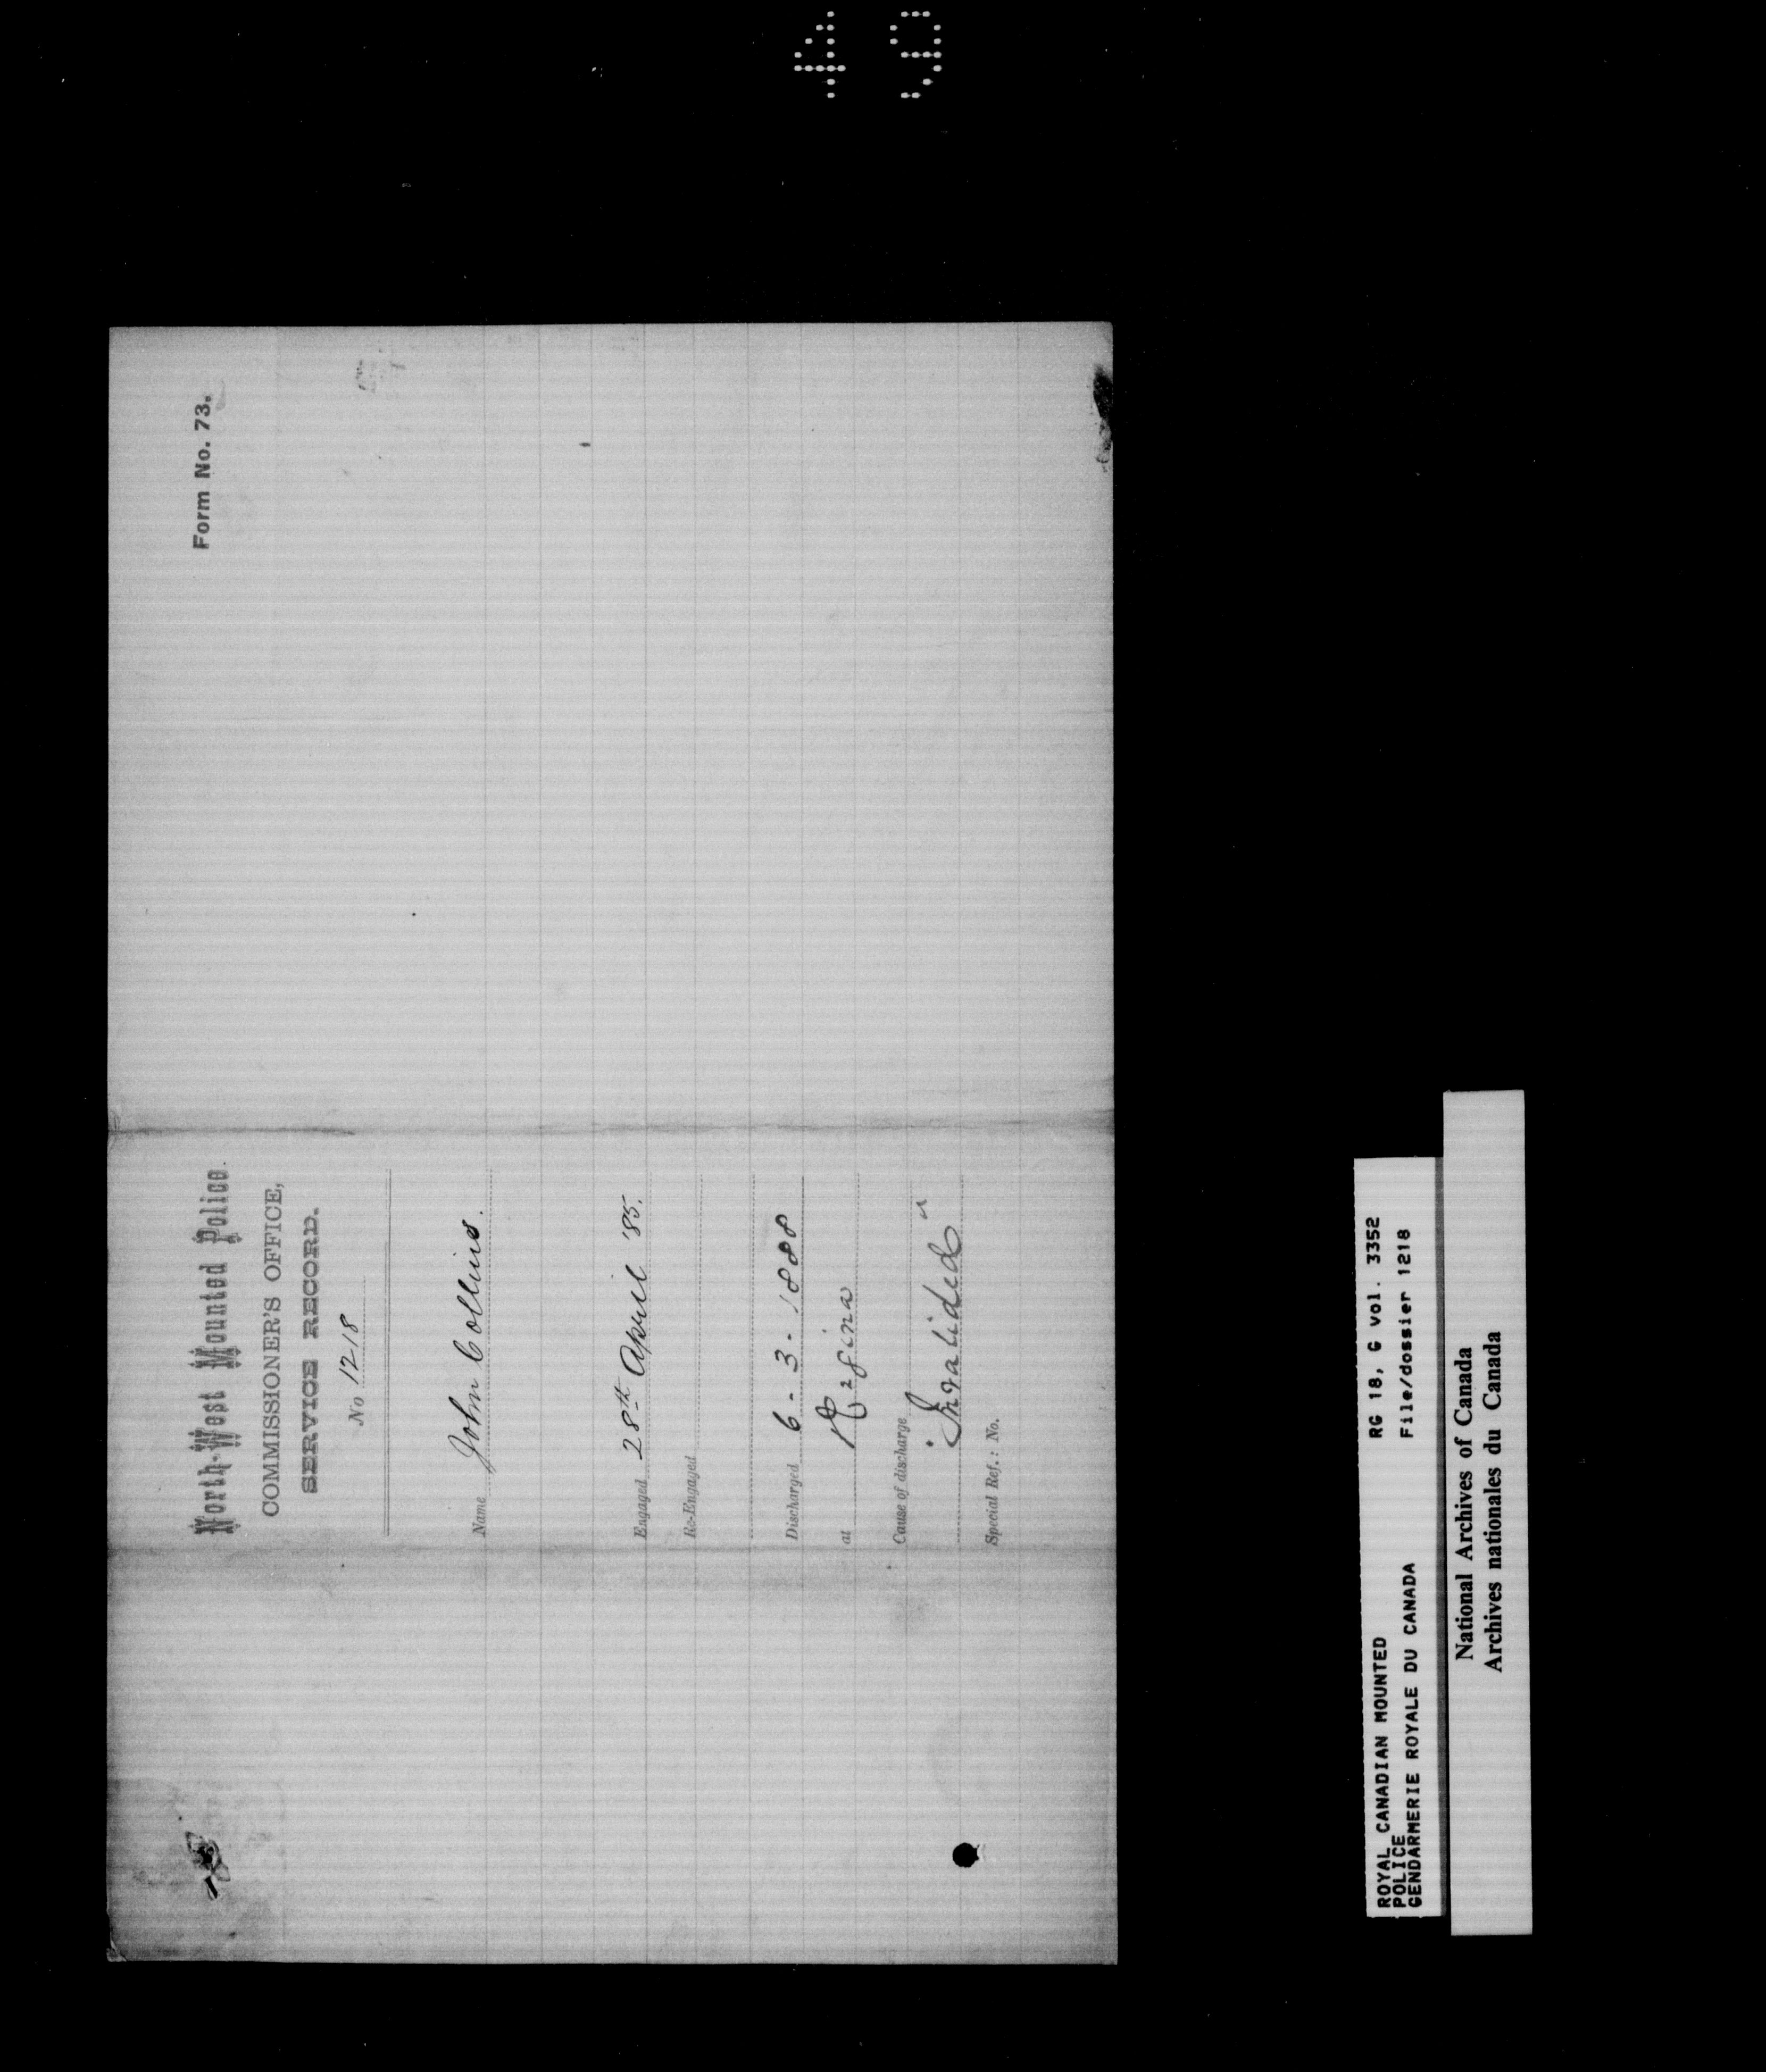 45
Form No. 73.
North-West Mounted Police.
COMMISSIONER'S OFFICE,
SERVICE RECORD.
No 1218
Name John Collins.
Engaged 28th April '85.
Re-Engaged
Discharged 6-3-1888
at Regina
Cause of discharge
"Invalided"
Special Ref.: No.
ROYAL CANADIAN MOUNTED RG 18, G vol. 3352
POLICE
GENDARMERIE ROYALE DU CANADA File/dossier 1218
National Archives of Canada
Archives nationales du Canada